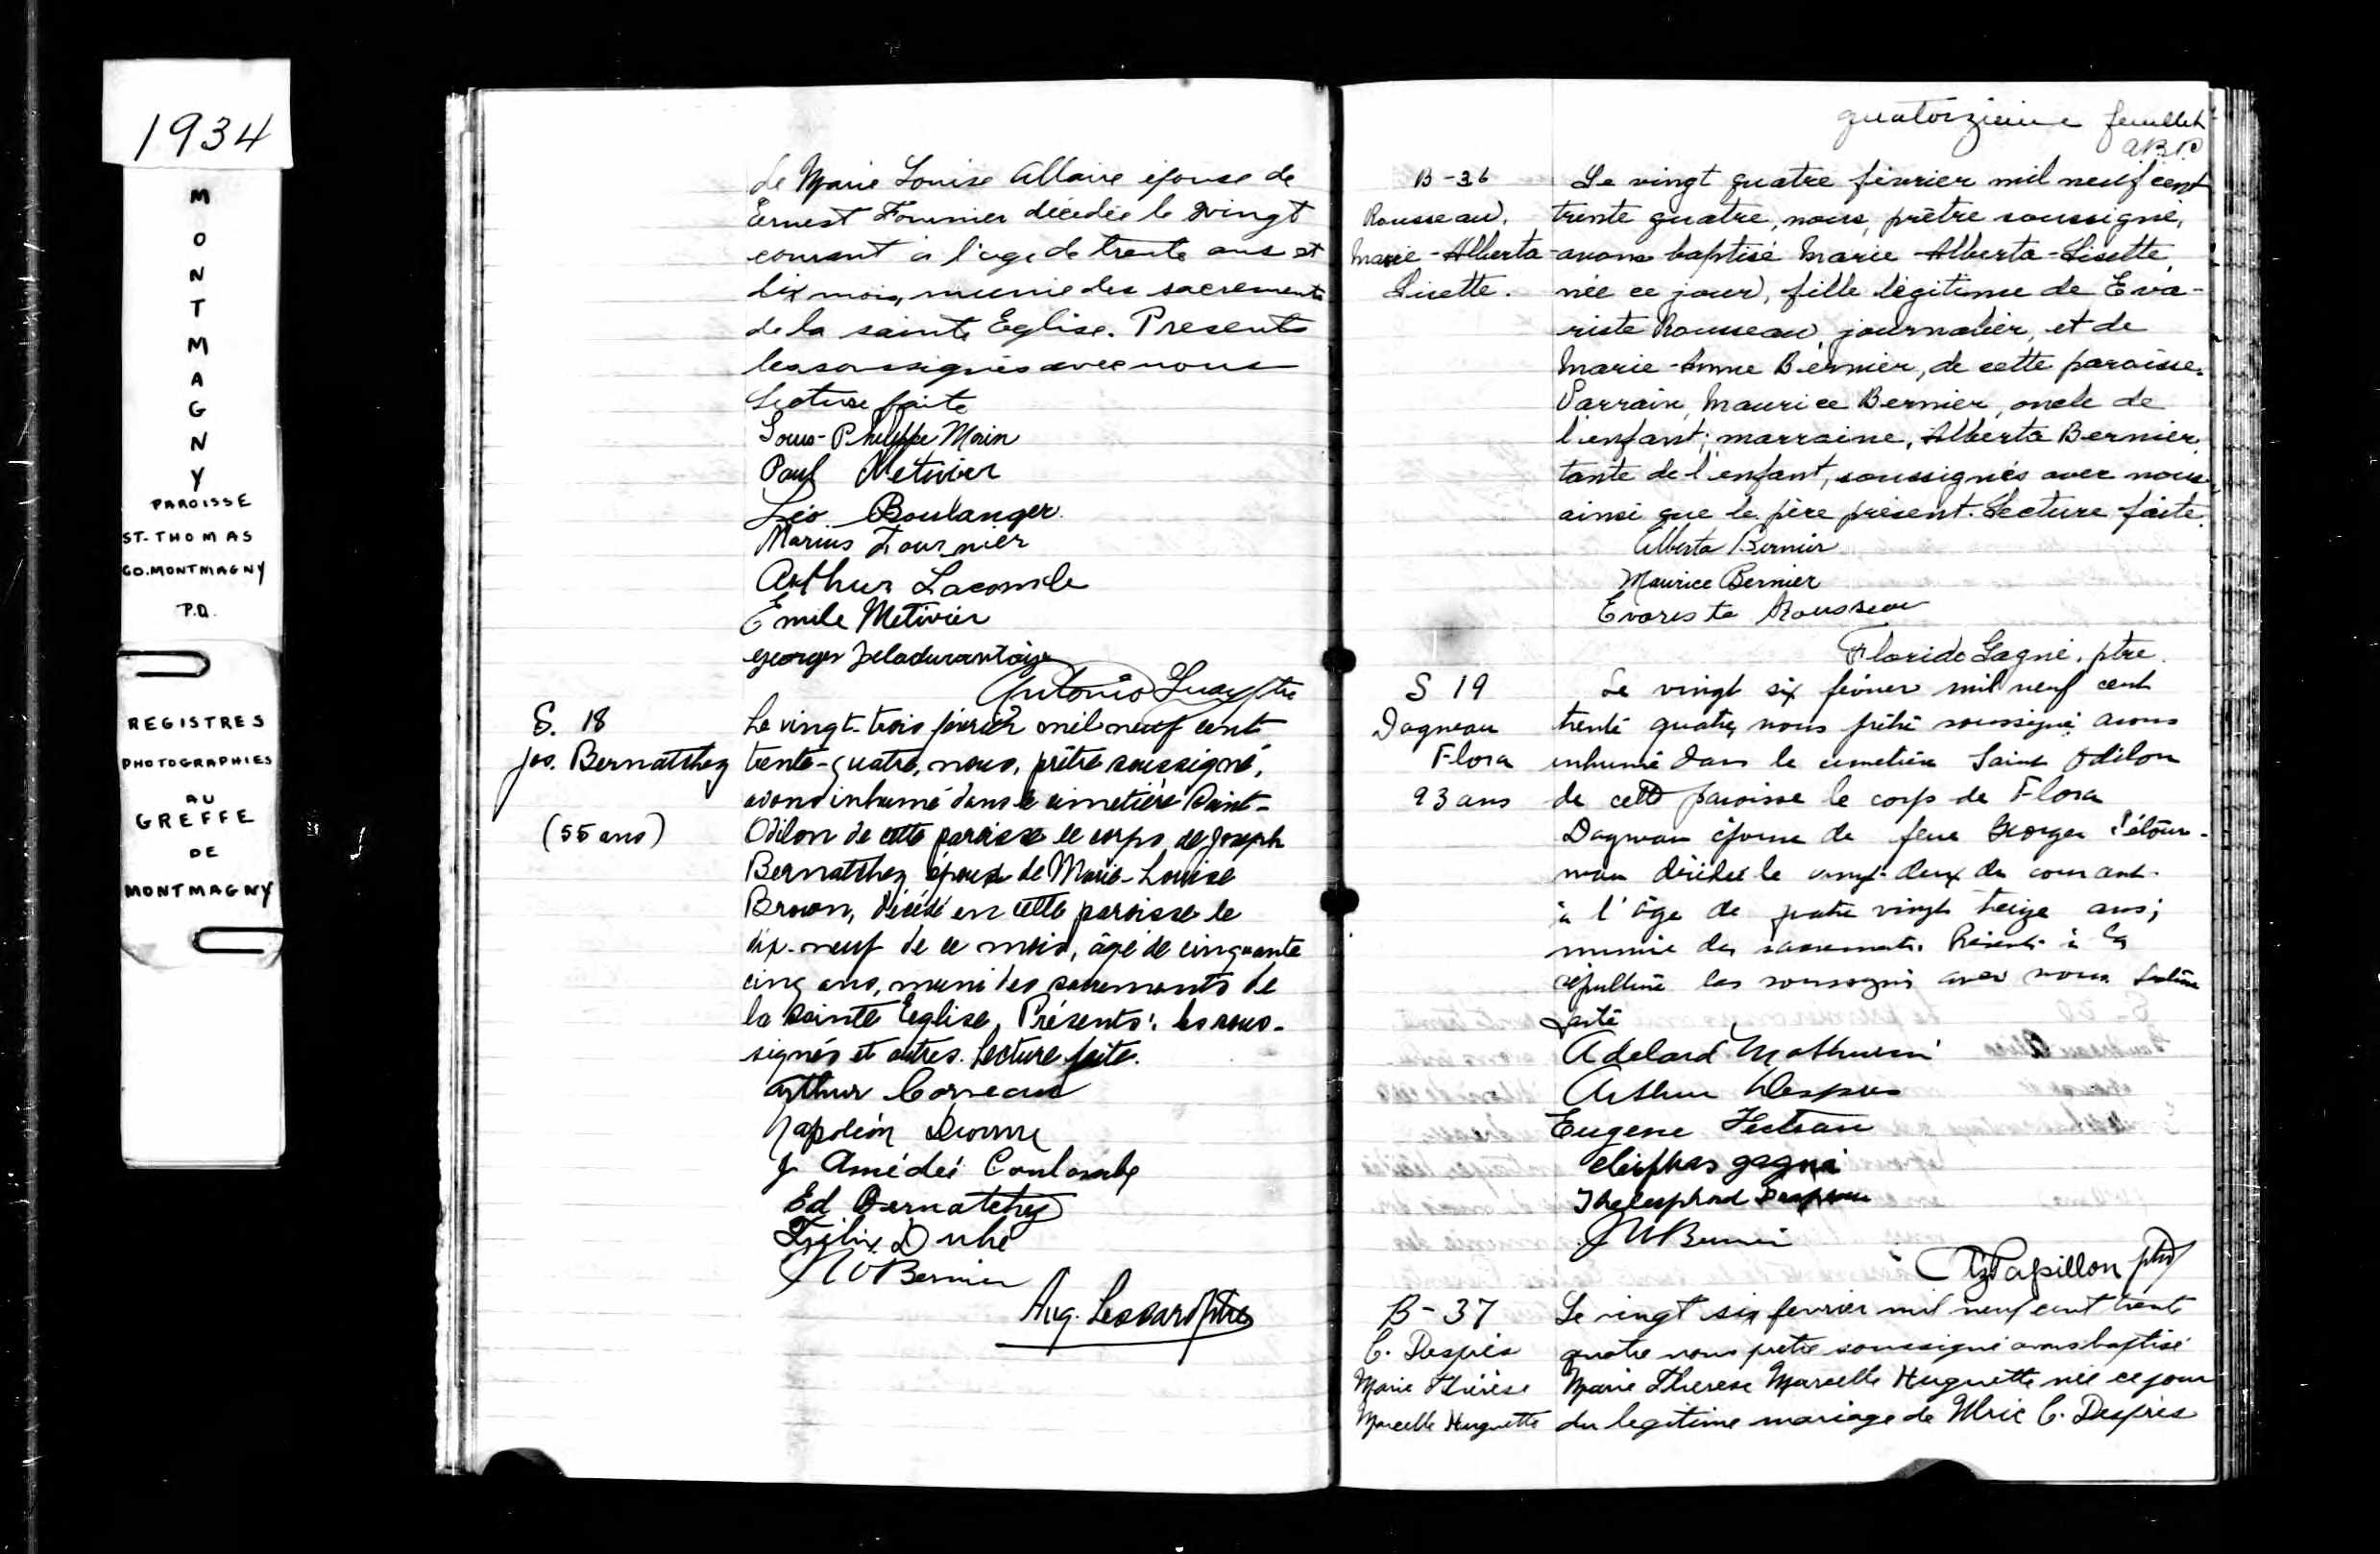 1934
MONTMAGNY
PAROISSE
ST-THOMAS
CO. MONTMAGNY
P.Q.
REGISTRES
PHOTOGRAPHIES
AU
GREFFE
DE
MONTMAGNY
de Marie Louise Allaire épouse de
Ernest Fournier décédée le vingt
courant à l'age de trente ans et
dix mois, munie des sacrements
de la sainte Eglise. Presents
les soussignés avec nous
Lecture faite
Louis-Philippe Morin
Paul Metivier
Léo Boulanger
Marius Fournier
Arthur Lacombe
Emile Metivier
Georges Deladurantaye
Antonio ptre
S. 18
Jos. Bernatchez
(55 ans)
Le vingt-trois février mil neuf cent
trente-quatre, nous, prêtre soussigné,
avons inhumé dans le cimetière Saint-
Odilon de cette paroisse le corps de Joseph
Bernatchez, époux de Marie-Louise
Brown, décédé en cette paroisse le
dix-neuf de ce mois, âgé de cinquante
cinq ans, muni des sacrements de
la Sainte Eglise. Présents: les sous-
signés et autres. Lecture faite.
Arthur
Napoléon Dionne
J. Amédée Coulombe
Ed Bernatchez
Félix Dubé
Bernier
Aug. Lessard ptre
quatorzieme feuillet
B-36
Rousseau,
Marie-Alberta
Lisette.
Le vingt quatre février mil neuf cent
trente quatre, nous, prêtre soussigné,
avons baptisé Marie-Alberta-Lisette,
née ce jour, fille légitime de Eva-
riste Rousseau, journalier, et de
Marie-Anne Bernier, de cette paroisse.
Parrain, Maurice Bernier, oncle de
l'enfant; marraine, Alberta Bernier,
tante de l'enfant, soussignés avec nous
ainsi que le père présent. Lecture faite.
Alberta Bernier
Maurice Bernier
Evariste Rousseau
Florido Gagné, ptre.
S 19
Dagneau
Flora
93 ans
Le vingt six février mil neuf cent
trente quatre, nous prêtre soussigné avons
inhumé dans le cimetière Saint Odilon
de cette paroisse le corps de Flora
Dagneau épouse de feue Georges Létour-
neau décédée le vingt-deux du courant
à l'âge de quatre vingt treize ans;
munie des sacrements. Présents à la
sépulture les soussignés avec nous. Lecture
faite
Adelard Mathurin
Arthur Despres
Eugene
Eliphas Gagné
Thelesphore
Bernier
Papillon ptre
B-37
C. Després
Marie Thérèse
Marcelle Huguette
Le vingt six fevrier mil neuf cent trente
quatre nous pretre soussigné avons baptisé
Marie Therese Marcelle Huguette née ce jour
du legitime mariage de Ulric C. Després